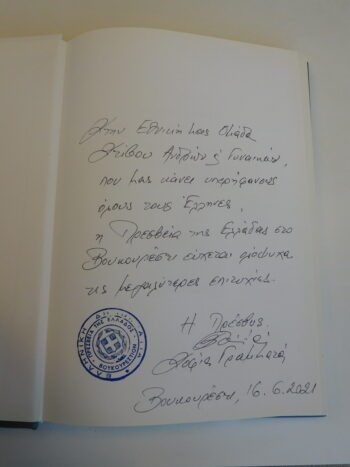 Στην Εθνική μας Ομάδα
Στίβου Ανδρών & Γυναικών,
που μας κάνει υπερήφανους
όλους τους Έλληνες,
η Πρεσβεία της Ελλάδας στο
Βουκουρέστι εύχεται
τις μεγαλύτερες επιτυχίες.
Η Πρέσβυς,
Σοφία Γραμματά
Βουκουρέστι, 16.6.2021
ΕΛΛΗΝΙΚΗ ΔΗΜΟΚΡΑΤΙΑ
ΠΡΕΣΒΕΙΑ ΤΗΣ ΕΛΛΑΔΟΣ
ΒΟΥΚΟΥΡΕΣΤΙΟΝ